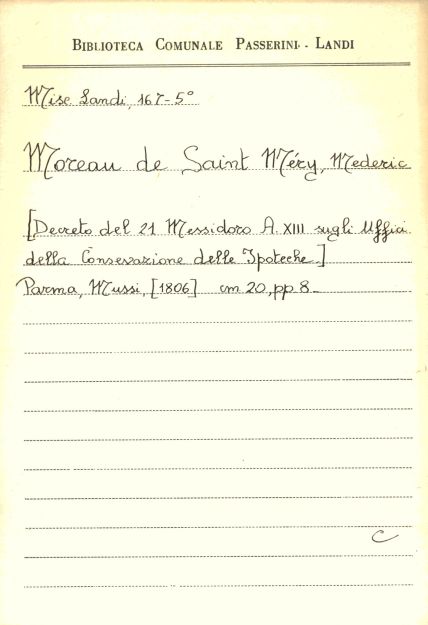 BIBLIOTECA COMUNALE PASSERINI - LANDI
Misc Landi, 167-5°
Moreau de Saint Méry, Mederic
[Decreto del 21 Messidoro A. XIII sugli Uffici
della Conservazione delle Ipoteche.]
Parma, Mussi, [1806] cm 20, pp 8-
C